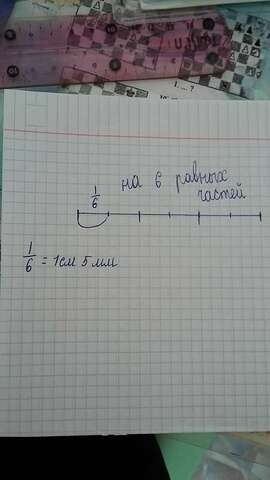 на 6 равных
частей
1/6
1/6 = 1см 5 мм